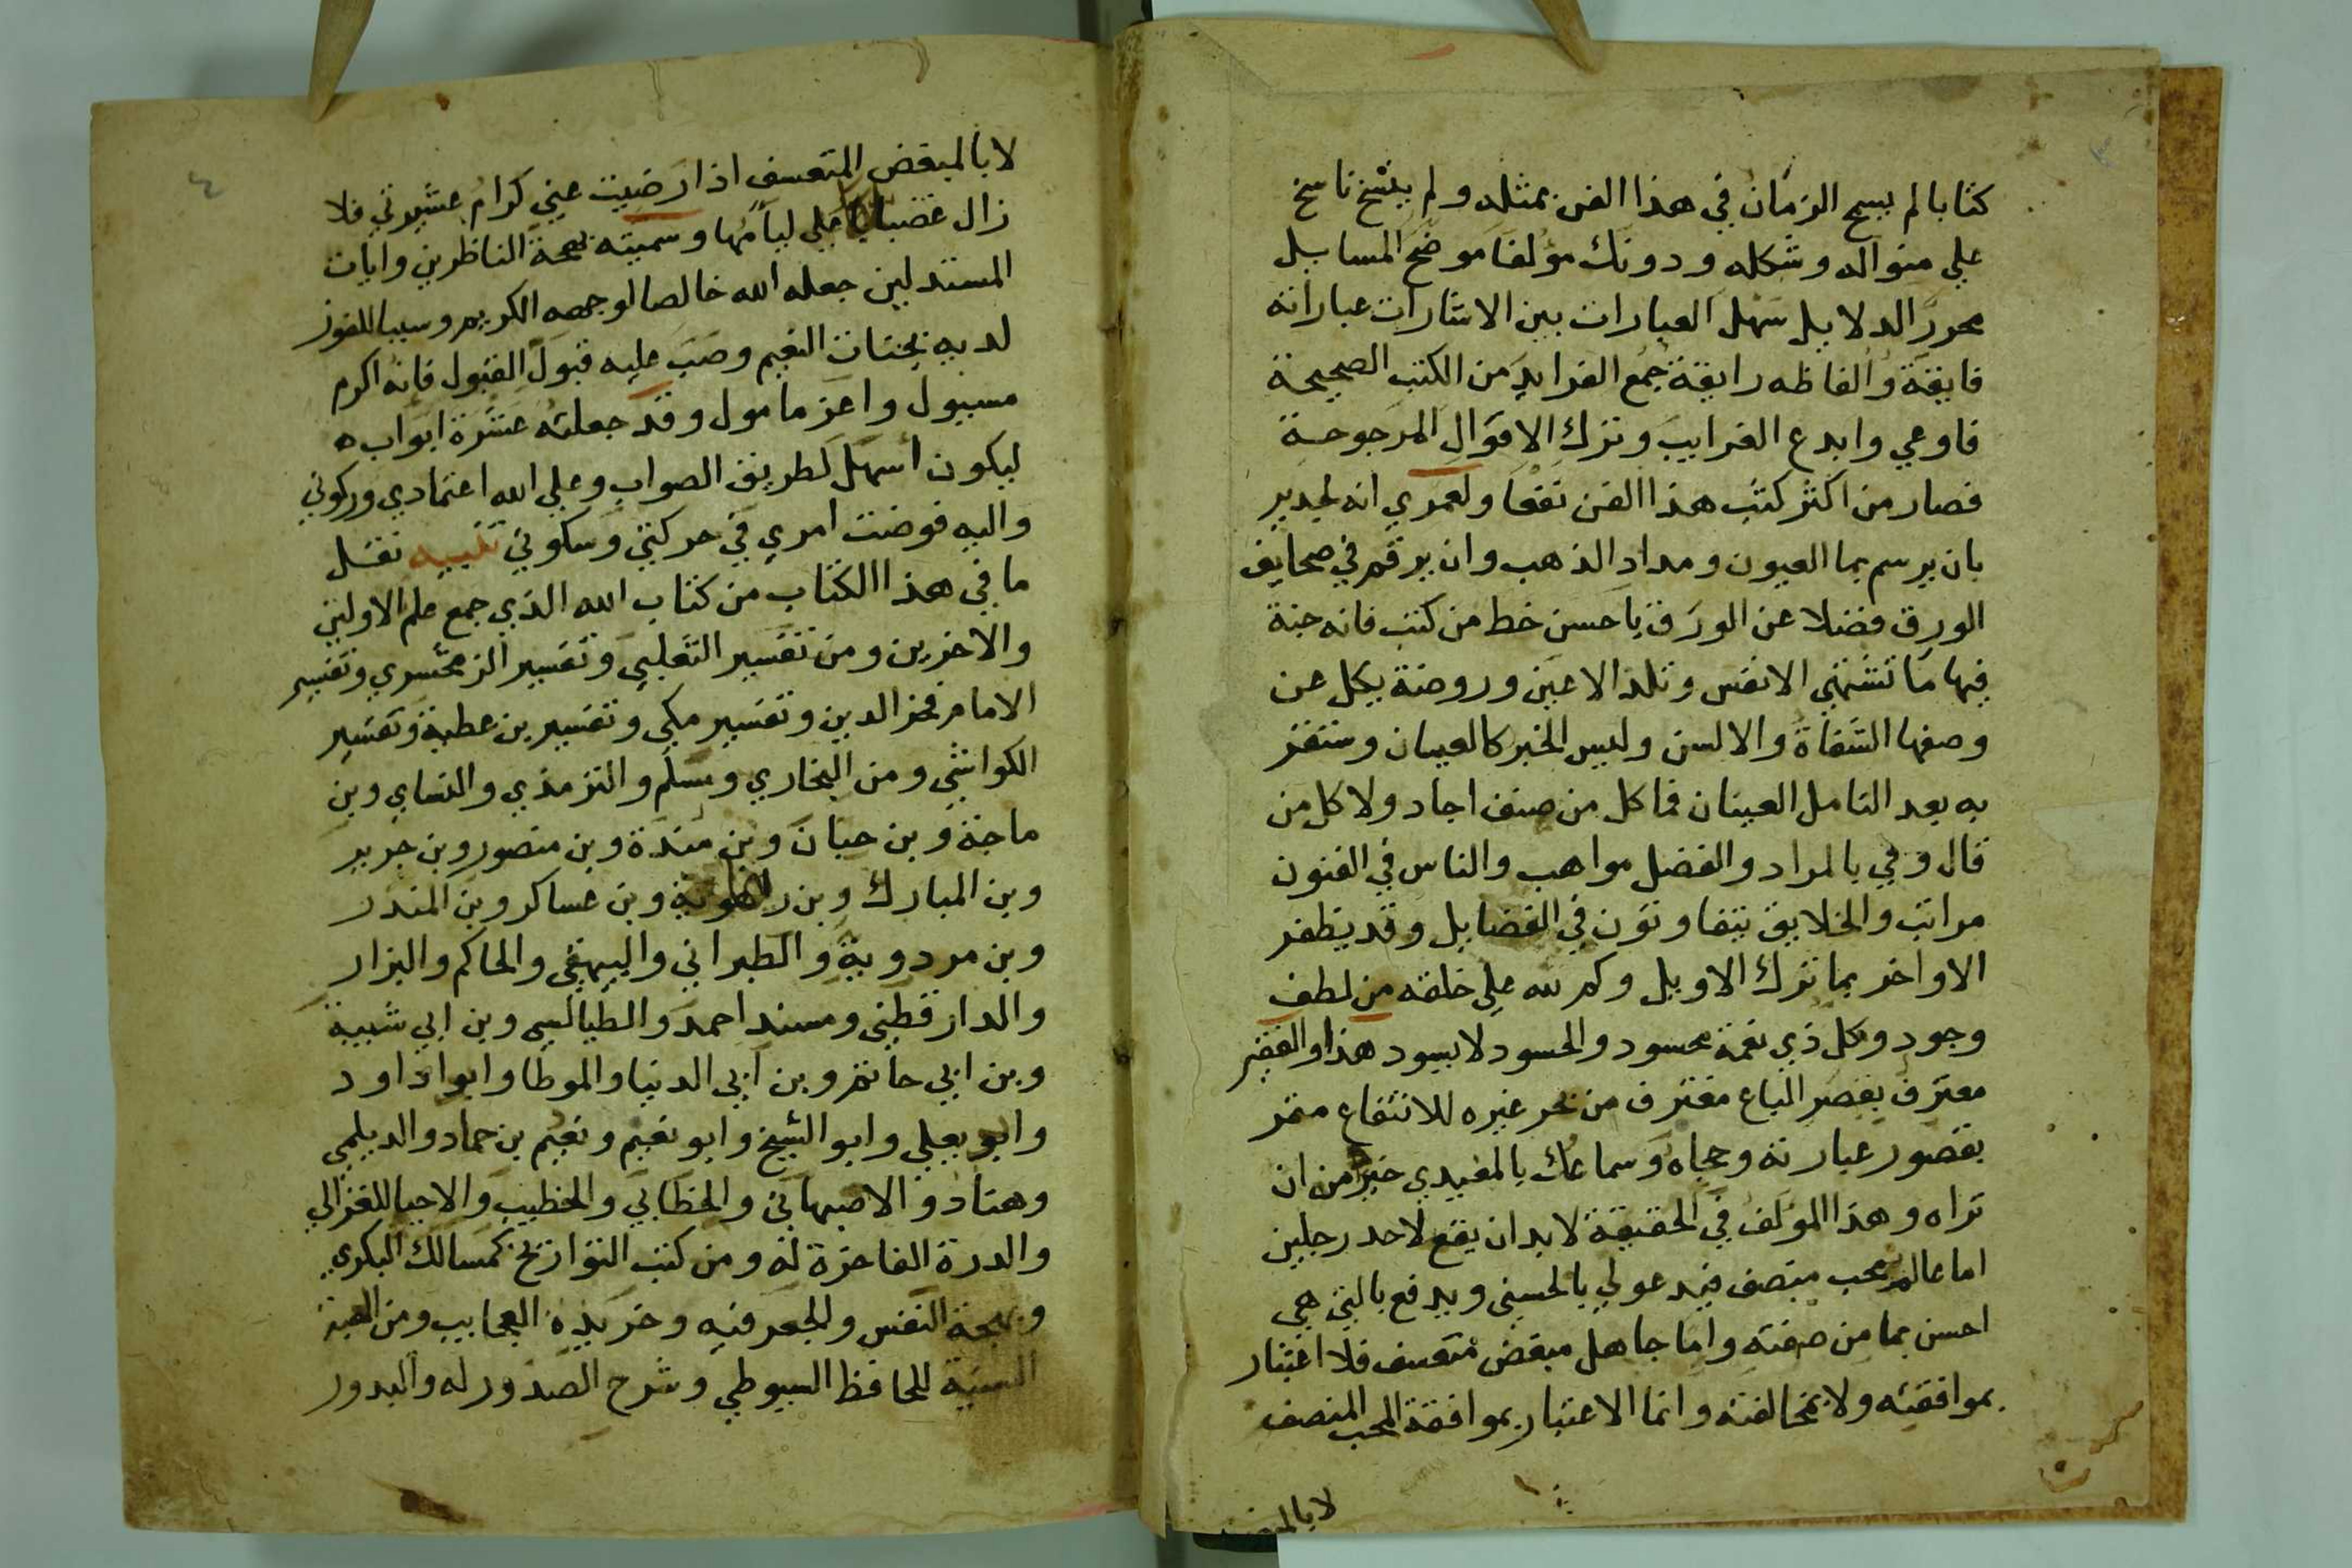 كتابا لم يسمح الزمان في هذا الفن بمثله ولم ينسخ ناسخ
علي منواله وشكله ودونك مؤلفا موضح المسايل
محرر الدلايل سهل العبارات بين الاشارات عباراته
فايقة والفاظه رايقة جمع الفرايد من الكتب الصحيحة
فاوعي وابدع الغرايب وترك الاقوال المرجوحة
فصار من اكثر كتب هذا الفن نفعا ولعمري انه لجدير
بان يرسم بما العيون ومداد الذهب وان يرقم في صحايف
الورق فضلا عن الورق باحسن خط من كتب فانه جنة
فيها ما تشتهي الانفس وتلذ الاعين وروضة يكل عن
وصفها الشفاة والالسن وليس الخبر كالعيان وستقر
به بعد التامل العينان فما كل من صنف اجاد ولا كل من
قال وفي بالمراد والفضل مواهب والناس في الفنون
مراتب والخلايق يتفاوتون في الفضايل وقد يظفر
الاواخر بما ترك الاوايل وكم لله علي خلقه من لطف
وجود وكل ذي نعمة محسود والحسود لا يسود هذا والفقير
معترف بقصر الباع مغترف من بحر غيره للانتفاع مقر
بقصور عبارته وحجاه وسماعك بالمعيدي خير من ان
تراه وهذا المولف في الحقيقة لابد ان يقع لاحد رجلين
اما عالم محب منصف فيدعو لي بالحسني ويدفع بالتي هي
احسن بما من صفته واما جاهل مبغض متعسف فلا اعتبار
بموافقته ولا بمخالفته وانما الاعتبار بموافقة المحب المنصف
لا بالمبغض
لا بالمبغض المتعسف اذا رضيت عني كرام عشيرتي فلا
زال غضبانا علي ليامها وسميته بهجة الناظرين وايات
المستدلين جعله الله خالصا لوجهه الكريم وسببا للفوز
لديه بجنات النعيم وصب عليه قبول القبول فانه اكرم
مسيول واعز مامول وقد جعلته عشرة ابواب ه
ليكون أسهل لطريق الصواب وعلي الله اعتمادي وركوني
واليه فوضت امري في حركتي وسكوني تنبيه نقل
ما في هذا الكتاب من كتاب الله الذي جمع علم الاولين
والاخرين ومن تفسير الثعلبي وتفسير الزمخشري وتفسير
الامام فخر الدين وتفسير مكي وتفسير بن عطية وتفسير
الكواشي ومن البخاري ومسلم والترمذي والنساي وبن
ماجة وبن حبان وبن مندة وبن منصور وبن جرير
وبن المبارك وبن راهوية وبن عساكر وبن المنذر
وبن مردوية والطبراني والبيهقي والحاكم والبزار
والدارقطني ومسند احمد والطيالسي وبن ابي شيبة
وبن ابي حاتم وبن ابي الدنيا والموطا وابوا داود
وابو يعلي وابو الشيخ وابو نعيم ونعيم بن حماد والديلمي
وهناد والاصبهاني والخطابي والخطيب والاحيا للغزالي
والدرة الفاخرة له ومن كتب التواريخ كمسالك البكري
وبهجة النفس والجعرفيه وخريدة العجايب ومن الهية
السنية للحافظ السيوطي وشرح الصدور له والبدور